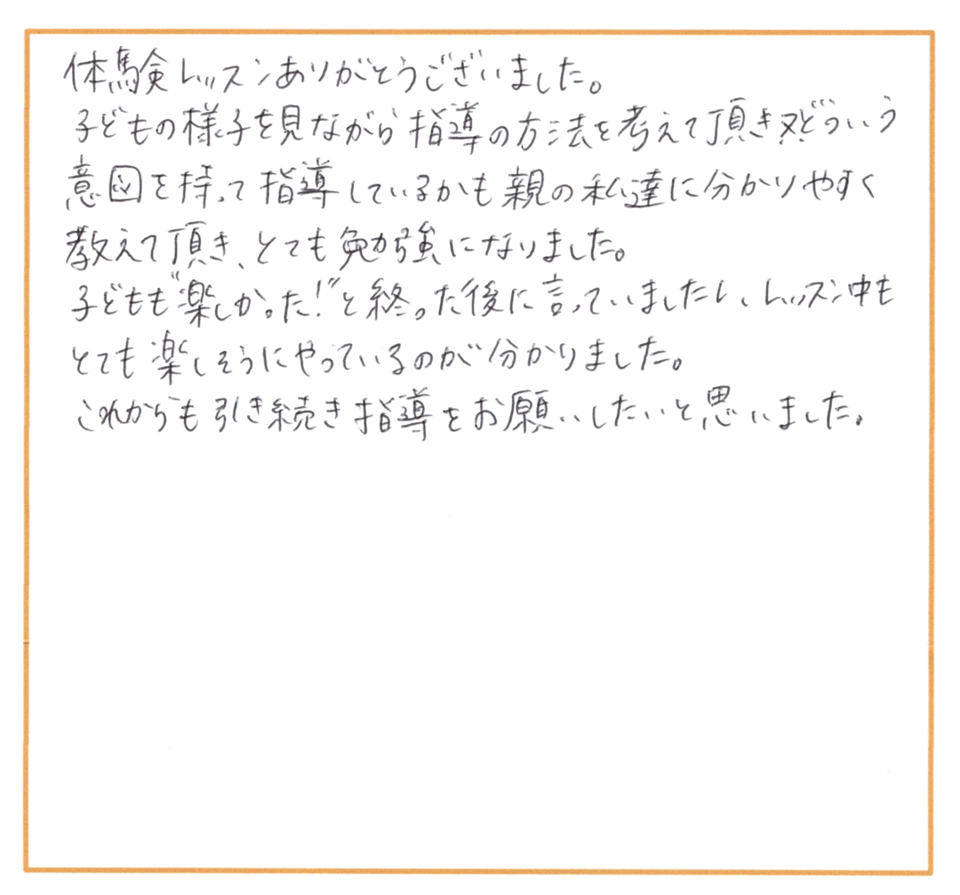 体験レッスンありがとうございました。
子どもの様子を見ながら指導の方法を考えて頂き又どういう
意図を持って指導しているかも親の私達に分かりやすく
教えて頂き、とても勉強になりました。
子どもも"楽しかった!"と終った後に言っていましたし、レッスン中も
とても楽しそうにやっているのが分かりました。
これからも引き続き指導をお願いしたいと思いました。